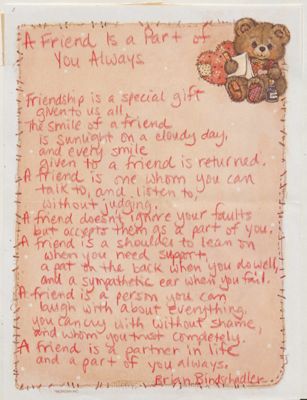 A Friend Is a Part of
You Always
Friendship is a special gift
given to us all,
The smile of a friend
is sunlight on a cloudy day,
and every smile
given to a friend is returned.
A friend is one whom you can
talk to, and listen to,
without judging.
A friend doesn't ignore your faults
but accepts them as a part of you.
A friend is a shoulder to lean on
when you need support,
a pat on the back when you do well,
and a sympathetic ear when you fail.
A friend is a person you can
laugh with about everything,
you can cry with without shame,
and whom you trust completely.
A friend is a partner in life
and a part of you always.
Brian Bindschadler